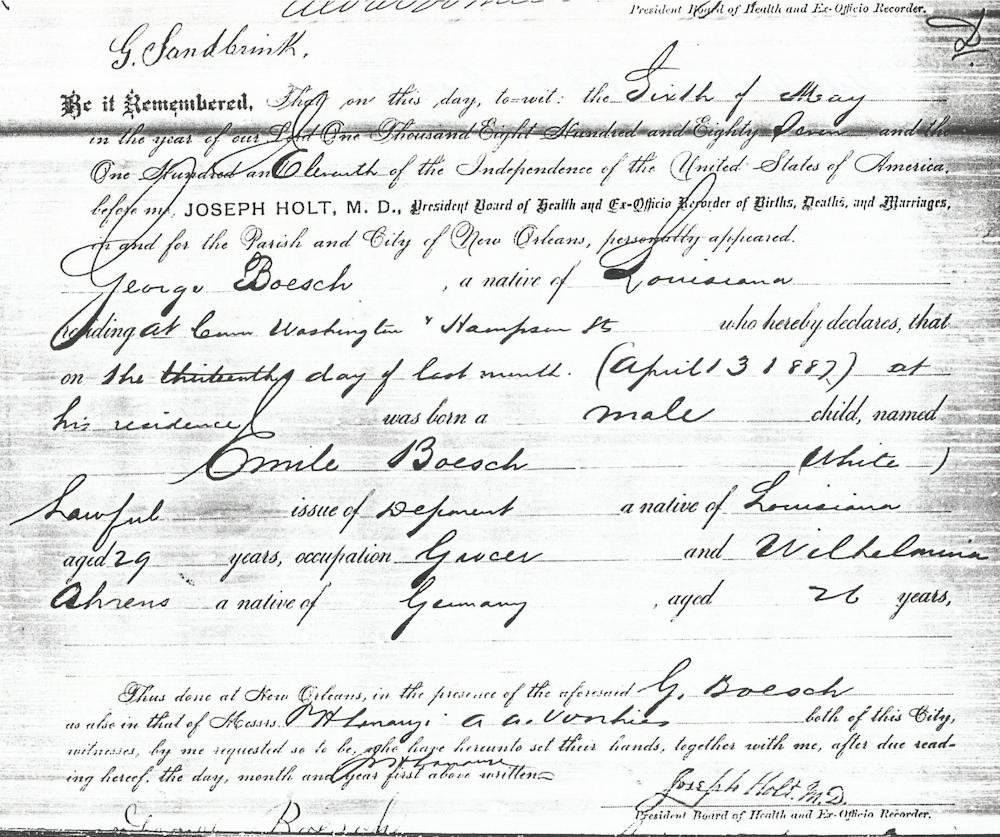 President Board of Health and Ex-Officio Recorder.
G. Sandbrink.
Be it Remembered, That on this day, to=wit: the Sixth of May
in the year of our Lord One Thousand Eight Hundred and Eighty Seven and the
One Hundred and Eleventh of the Independence of the United States of America,
before me, JOSEPH HOLT, M. D., President Board of Health and Ex-Officio Recorder of Births, Deaths, and Marriages,
in and for the Parish and City of New Orleans, personally appeared.
George Boesch , a native of Louisiana
residing at Washington & Hampson Sts who hereby declares, that
on the thirteenth day of last month. (April 13 1887) at
his residence was born a male child, named
Emile Boesch (White)
Lawful issue of Deponent a native of Louisiana
aged 29 years, occupation Grocer and Wilhelmina
Ahrens a native of Germany , aged 26 years,
Thus done at New Orleans, in the presence of the aforesaid G. Boesch
as also in that of Messrs. A. A. Voorhies both of this City,
witnesses, by me requested so to be, who have hereunto set their hands, together with me, after due read-
ing hereof, the day, month and year first above written=
Joseph Holt. M.D.
President Board of Health and Ex-Officio Recorder.